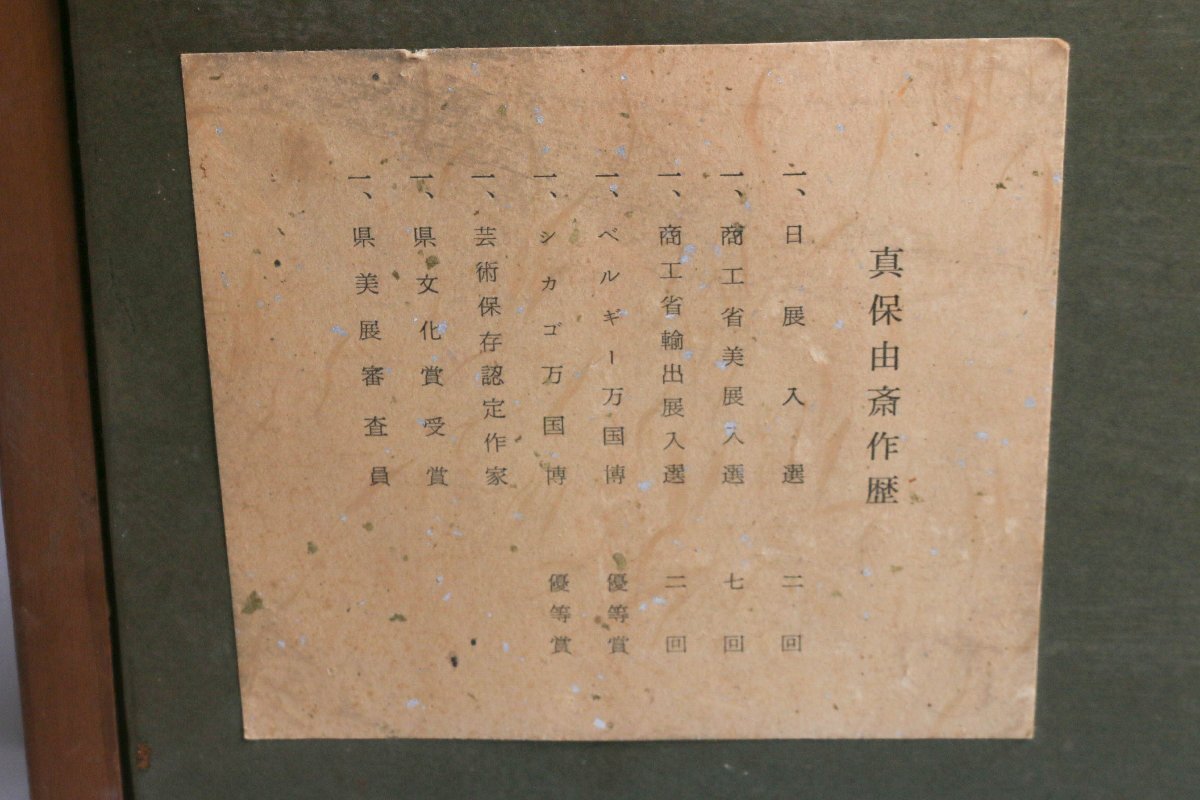 真保由斎作歴
一、日展入選 二回
一、商工省美展入選 七回
一、商工省輸出展入選 二回
一、ベルギー万国博 優等賞
一、シカゴ万国博 優等賞
一、芸術保存認定作家
一、県文化賞受賞
一、県美展審査員